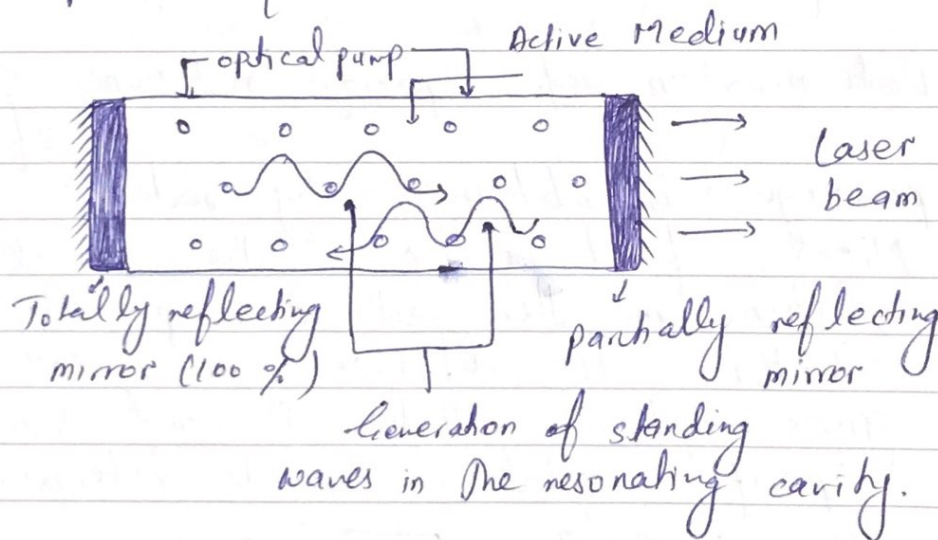 optical pump
Active Medium
Laser
beam
Totally reflecting
mirror (100 %)
partially reflecting
mirror
Generation of standing
waves in the resonating cavity.